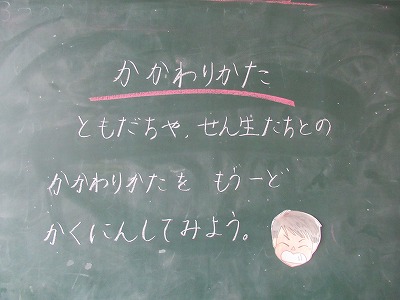 かかわりかた
ともだちや、せん生たちとの
かかわりかたを もう一ど
かくにんしてみよう。